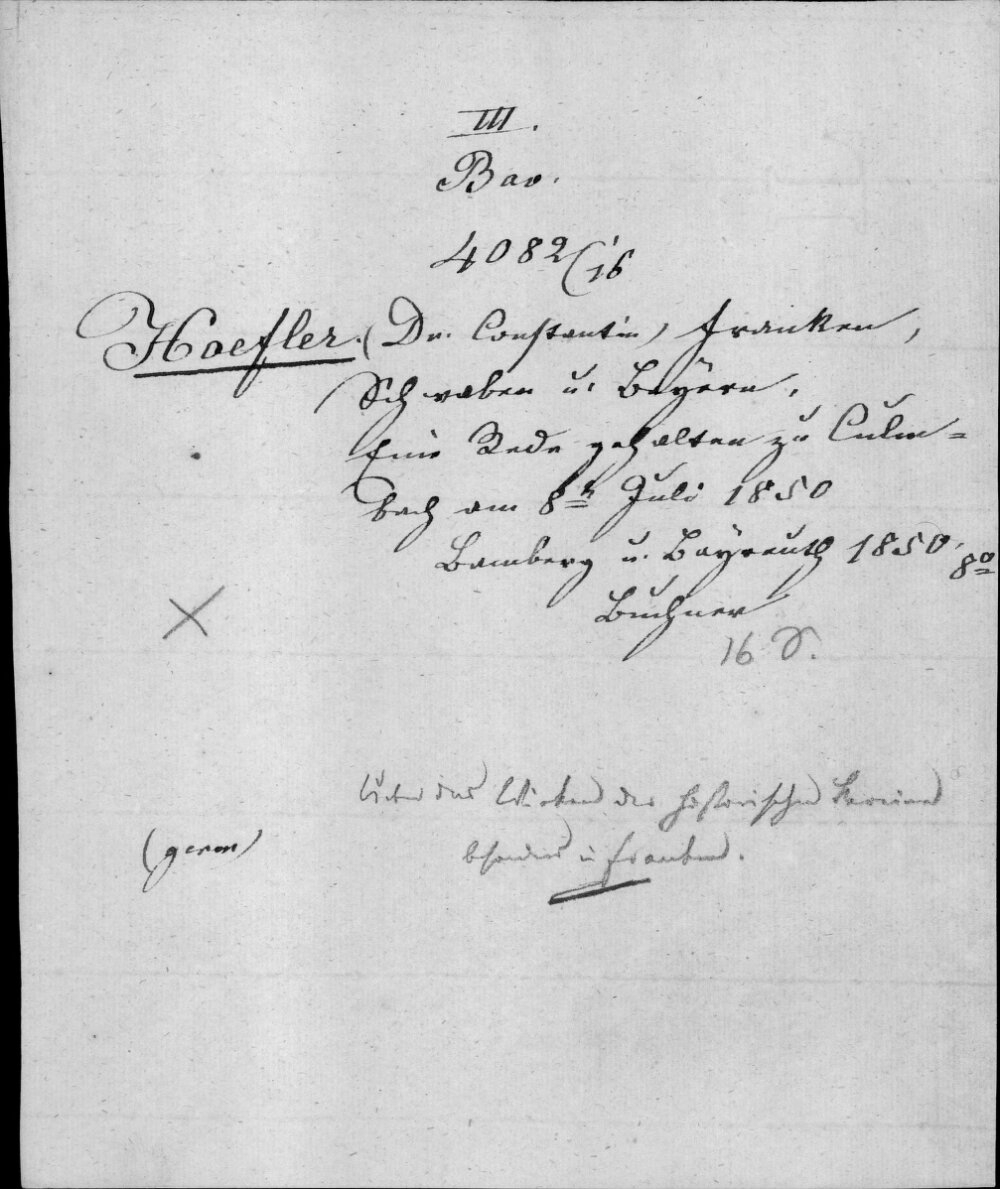 III.
Bav.
4082/16
Hoefler. (Dr. Constantin) Franken,
Schwaben u. Bayern.
Eine Rede gehalten zu Culm=
bach am 8t Juli 1850
Bamberg u. Bayreuth 1850. 8o
Buchner
16 S.
Ueber das Wirken der historischen Vereine
besonders in Franken.
(geron)